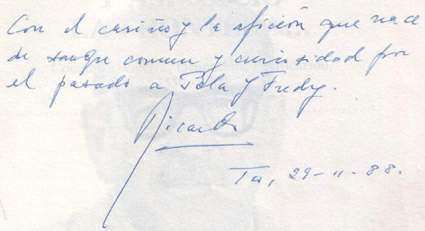 Con el cariño y la afición que nace
de sangre comun y curiosidad por
el pasado a Pola y Fredy.
Ricardo
29-11-88.